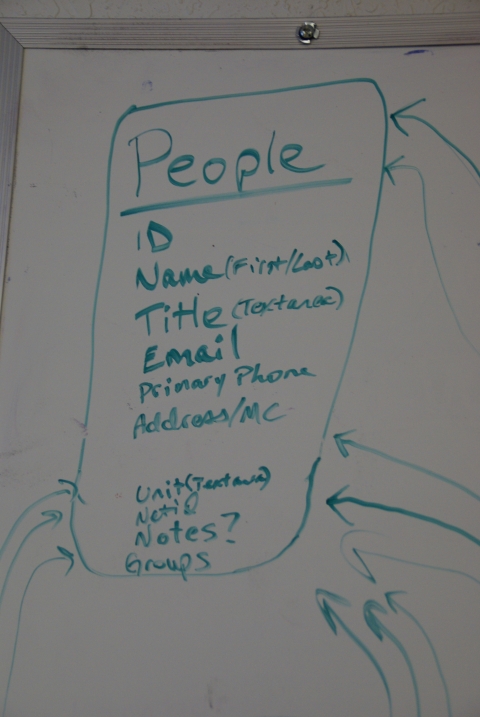 People
ID
Name (First/Last)
Title (Textarea)
Email
Primary Phone
Address/MC
Unit (Textarea)
NetID
Notes?
Groups